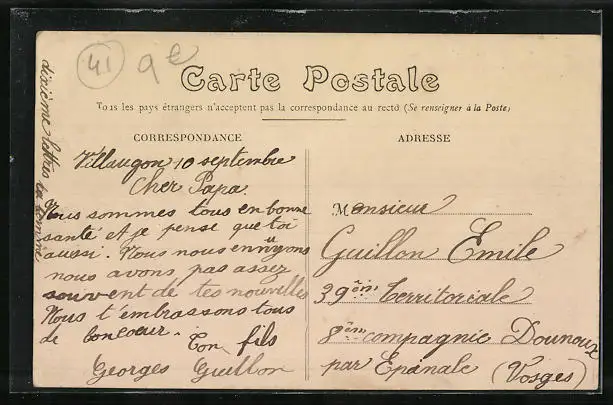 41 9e
Carte Postale
Tous les pays étrangers n'acceptent pas la correspondance au recto (Se renseigner à la Poste)
CORRESPONDANCE
Villaugon 10 septembre
Cher Papa.
Nous sommes tous en bonne
santé et je pense que toi
aussi. Nous nous ennuyons
nous avons pas assez
souvent de tes nouvelles
Nous t'embrassons tous
de bon cœur. Ton fils
Georges Guillon
dixième lettres
ADRESSE
Monsieur
Guillon Emile
39ème territoriale
8ème compagnie Dounoux
par Epanale (Vosges)